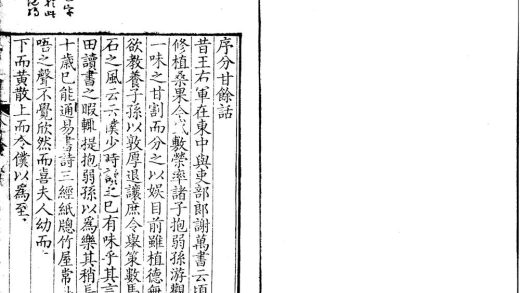 序分甘餘話
昔王右軍在東中與吏部郎謝萬書云頃
修植桑果今敷榮率諸子抱弱孫游觀
一味之甘割而分之以娛目前雖植德無
欲教養子孫以敦厚退讓庶令舉策數馬
石之風云云僕少時讀之已有味乎其言
田讀書之暇輒提抱弱孫以為樂其稍長
十歲已能通易書詩三經紙牕竹屋常
唔之聲不覺欣然而喜夫人幼而
下而黃散上而令僕以為至